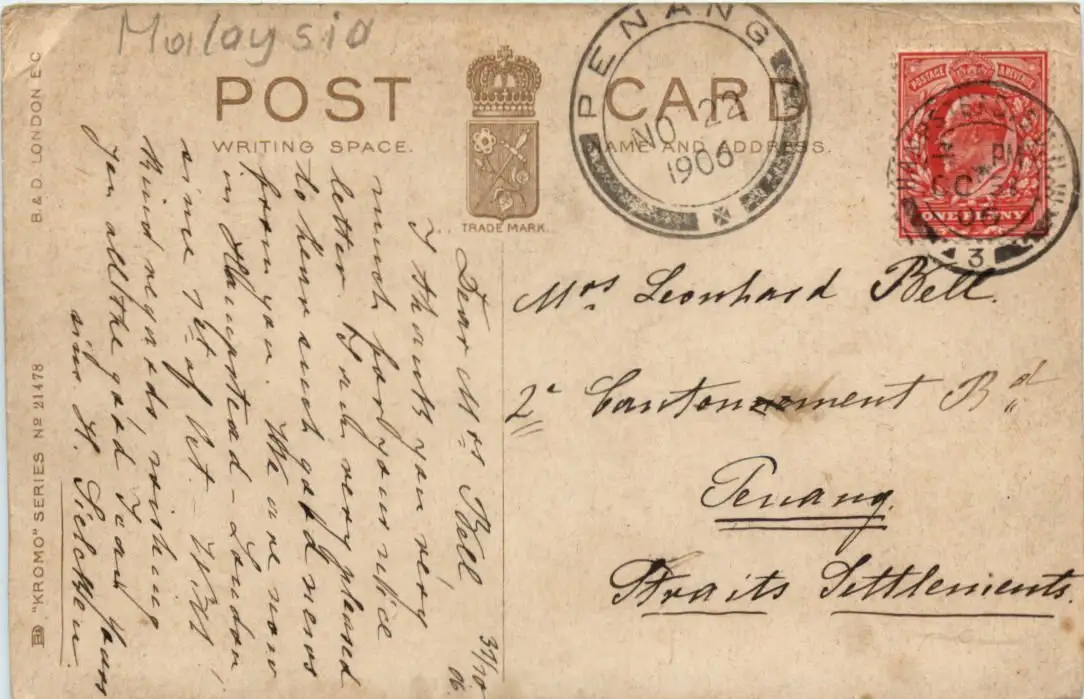 Malaysia
POST CARD
WRITING SPACE.
NAME AND ADDRESS.
TRADE MARK.
PENANG
NO 22
1906
POSTAGE & REVENUE
ONE PENNY
PM
3
B & D. LONDON E C
"KROMO" SERIES Nº 21478
Mrs Leonhard Bell.
2a Cantonement Rd
Penang.
Straits Settlements.
31/10 06.
Dear Mrs Bell,
I thank you very
much for your nice
letter. I am very pleased
to hear such good news
from you. We are now
in Hampstead - London
since 1st of Oct. - With
kind regards, wishing
you all the good I am yours
H.